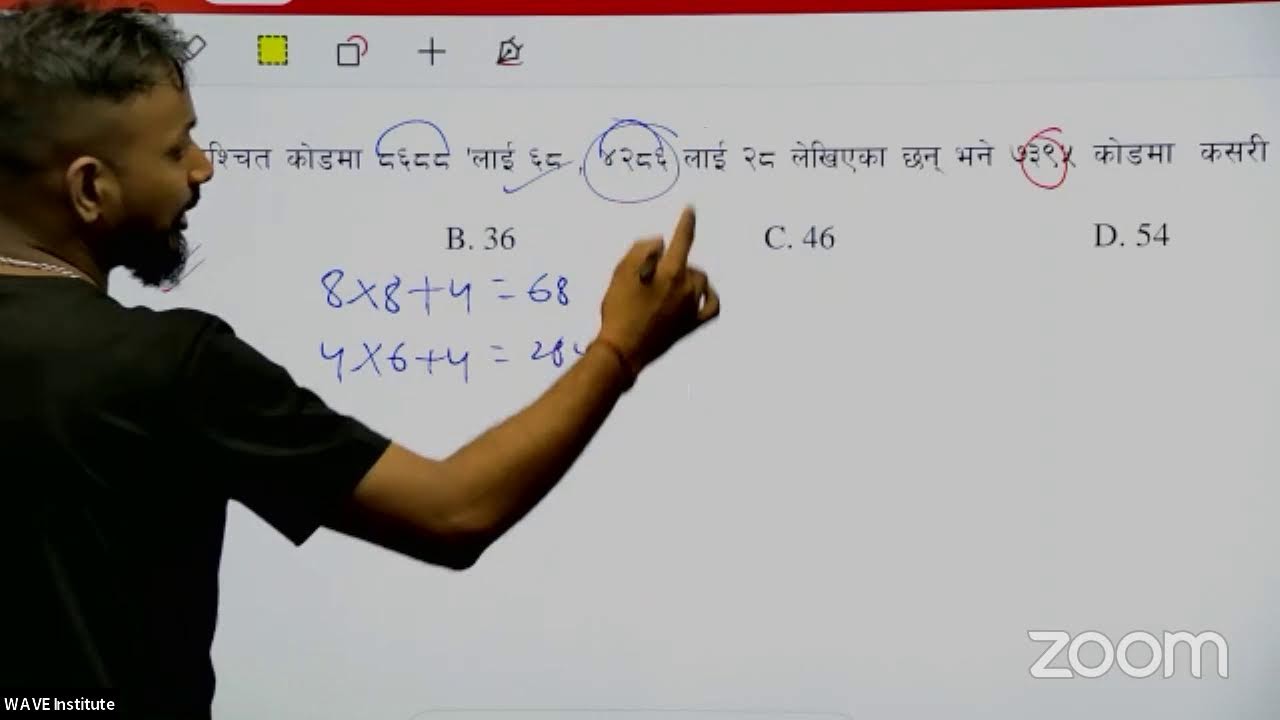 श्चित कोडमा ८६८८ 'लाई ६८, '४२८६ लाई २८ लेखिएका छन् भने ७३९५ कोडमा कसरी
B. 36 C. 46 D. 54
8×8+4 = 68
4×6+4 = 28
zoom
WAVE Institute